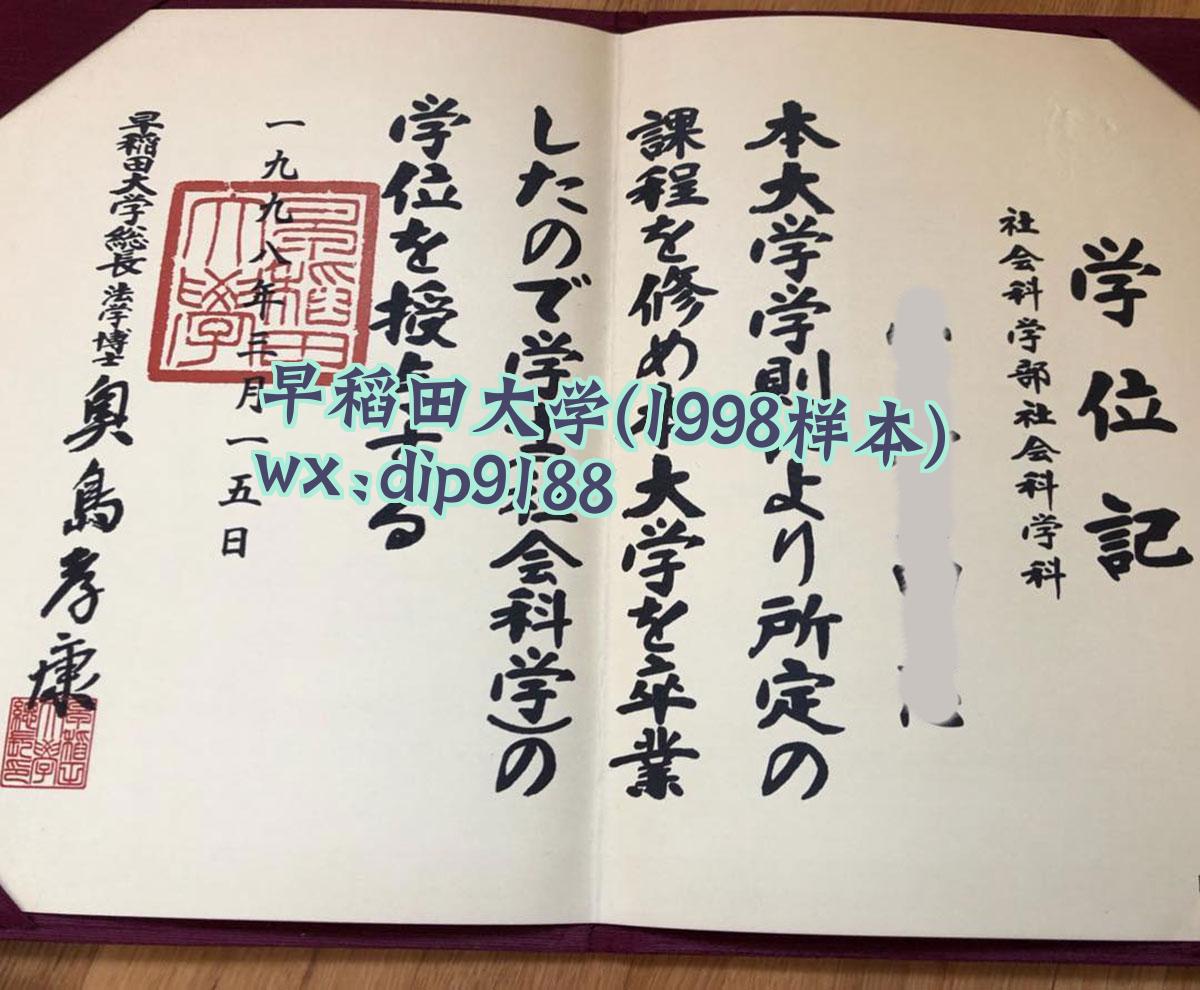 学位記
社会科学部社会科学科
本大学学則により所定の
課程を修め本大学を卒業
したので学士(社会科学)の
学位を授与する
一九九八年三月一五日
早稲田大学総長 法学博士 奥島孝康
早稲田大學
早稲田大學総長印
早稻田大学(1998样本)
wx:dip9188